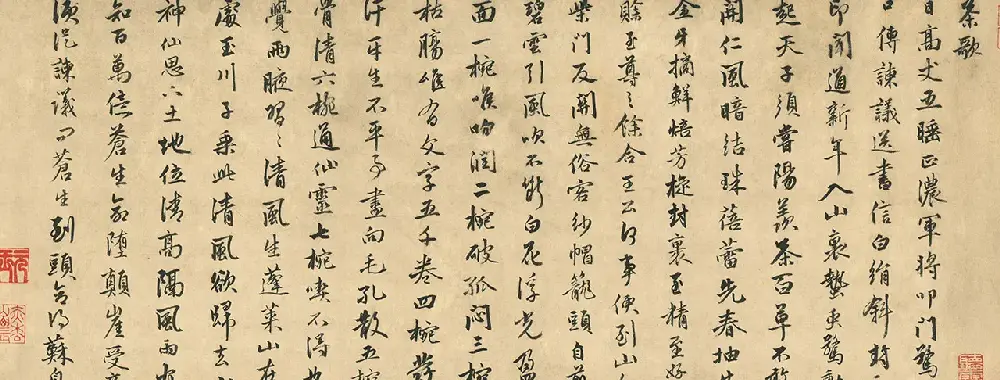 茶歌
日高丈五睡正濃軍將叩門驚
口傳諫議送書信白絹斜封
印聞道新年入山裏蟄虫驚動
起天子須嘗陽羨茶百草不敢
開仁風暗結珠蓓蕾先春抽
金牙摘鮮焙芳旋封裹至精至好
賒至尊之餘合王公何事便到山
柴門反關無俗客紗帽籠頭自煎
碧雲引風吹不斷白花浮光凝
面一椀喉吻潤二椀破孤悶三椀
枯腸唯有文字五千卷四椀發
汗平生不平事盡向毛孔散五椀
骨清六椀通仙靈七椀喫不得也
覺兩腋習〻清風生蓬萊山在
處玉川子乘此清風欲歸去
神仙下土地位清高隔風雨
知百萬億蒼生命墮顛崖受
須從諫議問蒼生到頭合得蘇